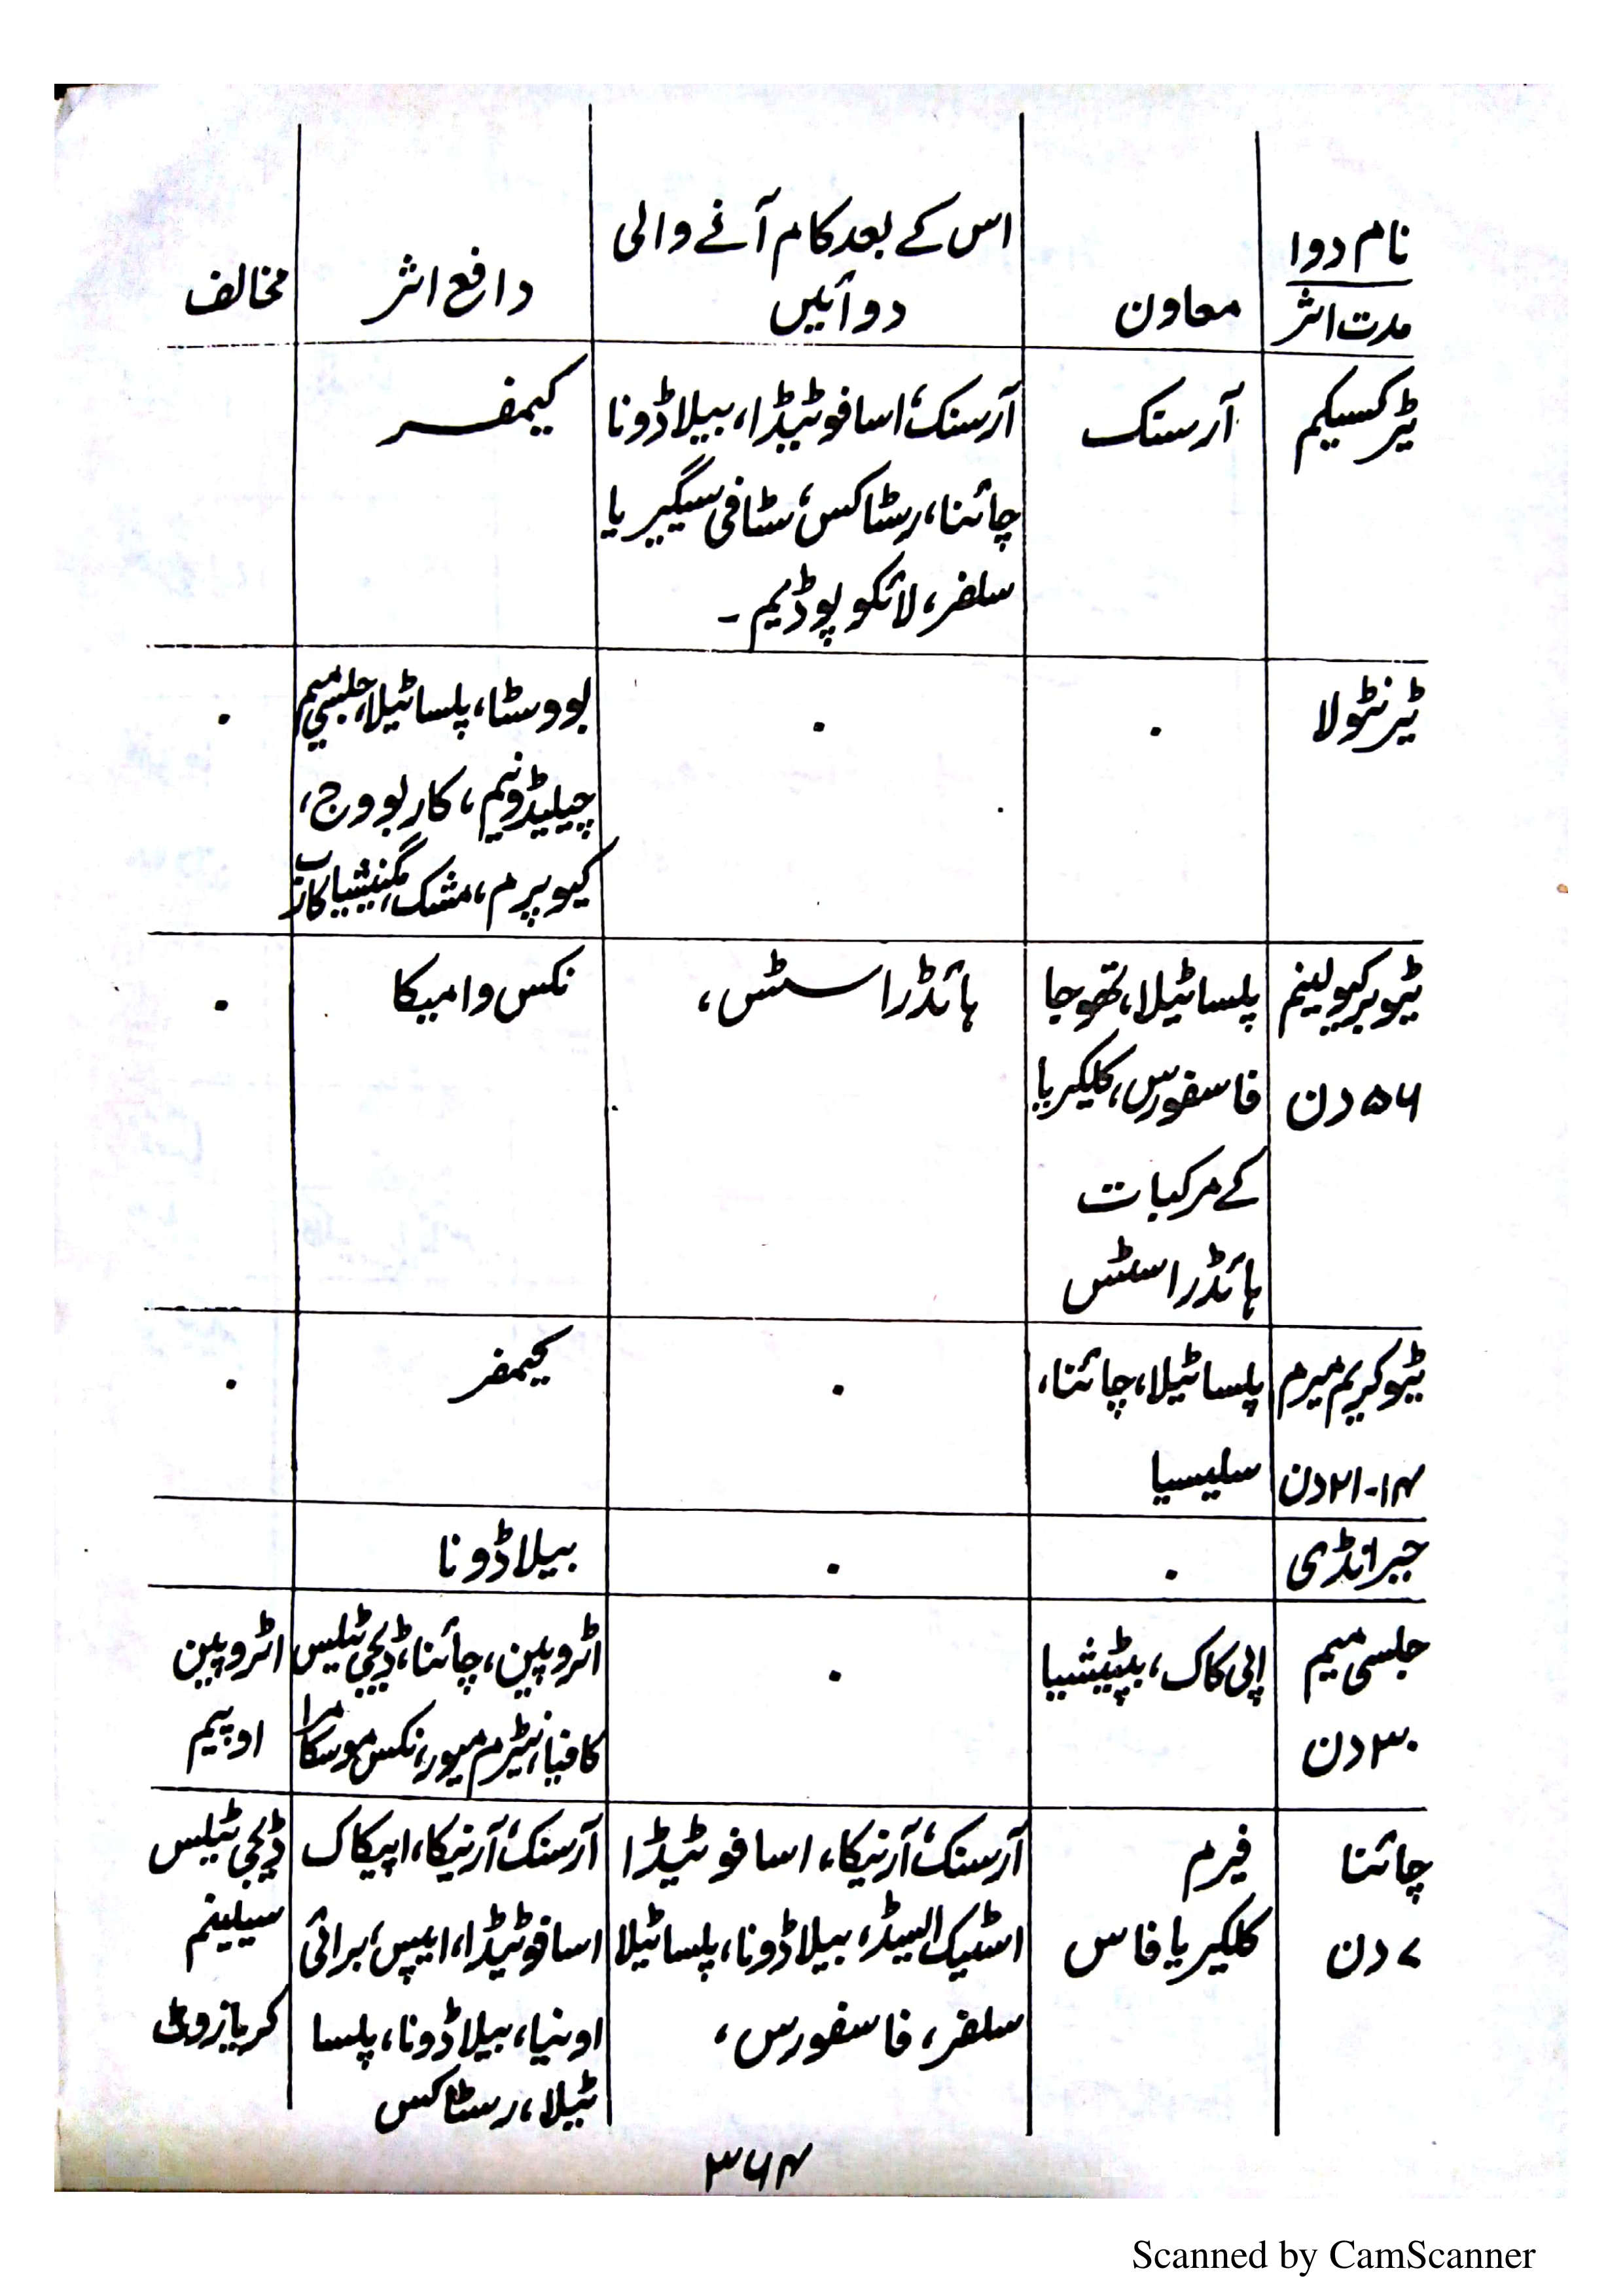 نام دوا
مدت اثر
معاون
اس کے بعد کام آنے والی
دوائیں
دافع اثر
مخالف
ٹرکسیکم
آرسنک
آرسنک، اسافوٹیڈا، بیلاڈونا
چائنا، رسٹاکس، سٹافی سیگیریا
سلفر، لائکوپوڈیم۔
کیمفر
ٹرنٹولا
.
.
بووسٹا، پلساٹیلا، جلسی میم
چیلیڈونیم، کاربووج،
کیوپرم، مشک، مگنیشیا کارب
.
ٹیوبرکیولینم
۵۶ دن
پلساٹیلا، تھوجا
فاسفورس، کلکیریا
کے مرکبات
ہائڈراسٹس
ہائڈراسٹس،
نکس وامیکا
.
ٹیوکریم میرم
۱۴-۲۱ دن
پلساٹیلا، چائنا،
سلیسیا
.
کیمفر
.
جبرانڈی
.
.
بیلاڈونا
جلسی میم
۳۰ دن
اپی کاک، بپٹیشیا
.
اٹروپین، چائنا، ڈیجی ٹیلس
کافیا، نیٹرم میور، نکس موسکاٹا
اٹروپین
اوپیم
چائنا
۷ دن
فیرم
کلکیریا فاس
آرسنک، آرنیکا، اسافوٹیڈا
اسٹیک ایسڈ، بیلاڈونا، پلساٹیلا
سلفر، فاسفورس،
آرسنک، آرنیکا، اپیکاک
اسافوٹیڈا، ایپس، برائی
اونیا، بیلاڈونا، پلسا
ٹیلا، رسٹاکس
ڈیجی ٹیلس
سیلینیم
کریازوٹ
۳۶۴
Scanned by CamScanner